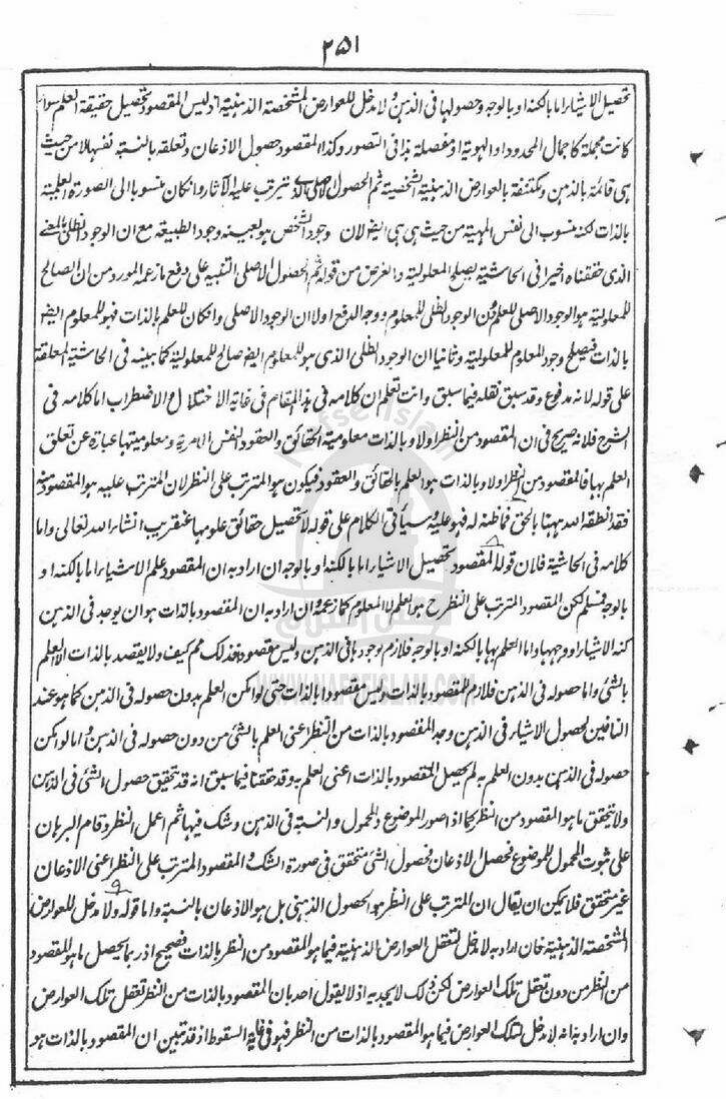 ۲۵۱
تحصيل الاشياء اما بالكنه او بالوجه وحصولها فى الذهن ولا مدخل للعوارض المشخصة الذهنية اذ ليس المقصود تحصيل حقيقة العلم سواء
كانت مجملة كاجمال المحدود او الهوية او مفصلة هذا فى التصور وكذا المقصود حصول الاذعان وتعلقه بالنسبة نفسها لا من حيث
هى قائمة بالذهن ومكتنفة بالعوارض الذهنية الشخصية ثم الحصول الاصلى الذى تترتب عليه الآثار وان كان منسوبا الى الصورة العلمية
بالذات لكنه منسوب الى نفس المهية من حيث هى هى ايضا لان وجود الشخص هو بعينه وجود الطبيعة مع ان الوجود الظلى بالمعنى
الذى حققناه اخيرا فى الحاشية يصلح المعلولية والغرض من قوله ثم الحصول الاصلى التنبيه على دفع ما زعمه المورد من ان الصالح
للمعلولية هو الوجود الاصلى للعلم دون الوجود الظلى للمعلوم ووجه الدفع اولا ان الوجود الاصلى وان كان للعلم بالذات فهو للمعلوم ايضا
بالذات فيصلح وجود المعلوم للمعلولية وثانيا ان الوجود الظلى الذى هو للمعلوم ايضا صالح للمعلولية كما بينه فى الحاشية المعلقة
على قوله لانه مدفوع وقد سبق نقله فيما سبق وانت تعلم ان كلامه فى هذا المقام فى غاية الاختلال والاضطراب اما كلامه فى
الشرح فلانه صريح فى ان المقصود من النظر اولا وبالذات معلومية الحقائق والعقود النفس الامرية ومعلوميتها عبارة عن تعلق
العلم بها فالمقصود من النظر اولا وبالذات هو العلم بالحقائق والعقود فيكون هو المترتب على النظر لان المترتب عليه هو المقصود منه
فقد انطقه الله ههنا بالحق فما ظنه له فهو عليه وسيأتى الكلام على قوله لا تحصيل حقائق علومها عنقريب انشاء الله تعالى واما
كلامه فى الحاشية فلان قوله المقصود تحصيل الاشياء اما بالكنه او بالوجه ان اراد به ان المقصود علم الاشياء اما بالكنه او
بالوجه فمسلم لكن المقصود المترتب على النظر ح هو العلم لا المعلوم كما زعم وان اراد به ان المقصود بالذات هو ان يوجد فى الذهن
كنه الاشياء او وجهها واما العلم بها بالكنه او بالوجه فلازم وجودها فى الذهن وليس مقصودا فذلك مم كيف ولا يقصد بالذات الا العلم
بالشئ واما حصوله فى الذهن فلازم للمقصود بالذات وليس مقصودا بالذات حتى لو امكن العلم بدون حصوله فى الذهن كما هو عند
النافين لحصول الاشياء فى الذهن وجد المقصود بالذات من النظر اعنى العلم بالشئ من دون حصوله فى الذهن واما لو امكن
حصوله فى الذهن بدون العلم به لم يحصل المقصود بالذات اعنى العلم به وقد حققنا فيما سبق انه قد تحقق حصول الشئ فى الذهن
ولا يتحقق ما هو المقصود من النظر كما اذا صور الموضوع والمحمول والنسبة فى الذهن وشك فيها ثم اعمل النظر وقام البرهان
على ثبوت المحمول للموضوع فحصل الاذعان فحصول الشئ متحقق فى صورة الشك والمقصود المترتب على النظر اعنى الاذعان
غير متحقق فلا يمكن ان يقال ان المترتب على النظر هو الحصول الذهنى بل هو الاذعان بالنسبة واما قوله ولا مدخل للعوارض
المشخصة الذهنية فان اراد به لا مدخل لتعقل العوارض الذهنية فيما هو المقصود من النظر بالذات فصحيح اذ ربما يحصل ما هو المقصود
من النظر من دون تعقل تلك العوارض لكن ذلك لا يجديه اذ لا يقول احد بان المقصود بالذات من النظر تعقل تلك العوارض
وان اراد به انه لا مدخل لتلك العوارض فيما هو المقصود بالذات من النظر فهو فى غاية السقوط اذ قد تبين ان المقصود بالذات هو
WWW.NAFSEISLAM.COM